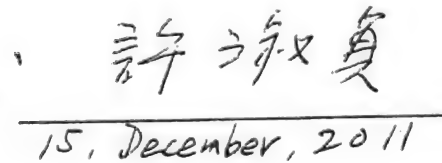 許淑貞
15, December, 2011